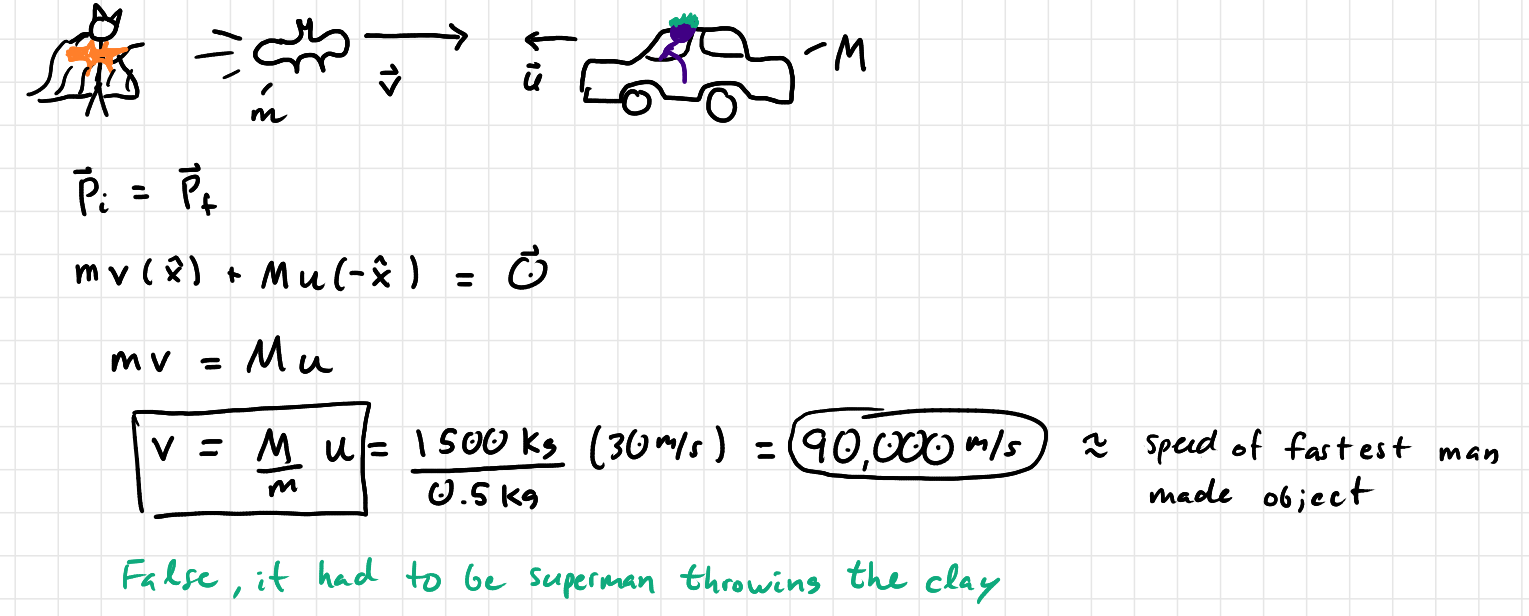 m v⃗ u⃗ M
P⃗i = P⃗f
mv(x̂) + Mu(-x̂) = 0⃗
mv = Mu
v = M/m u = 1500 kg/0.5 kg (30 m/s) = 90,000 m/s ≈ speed of fastest man
made object
False, it had to be superman throwing the clay